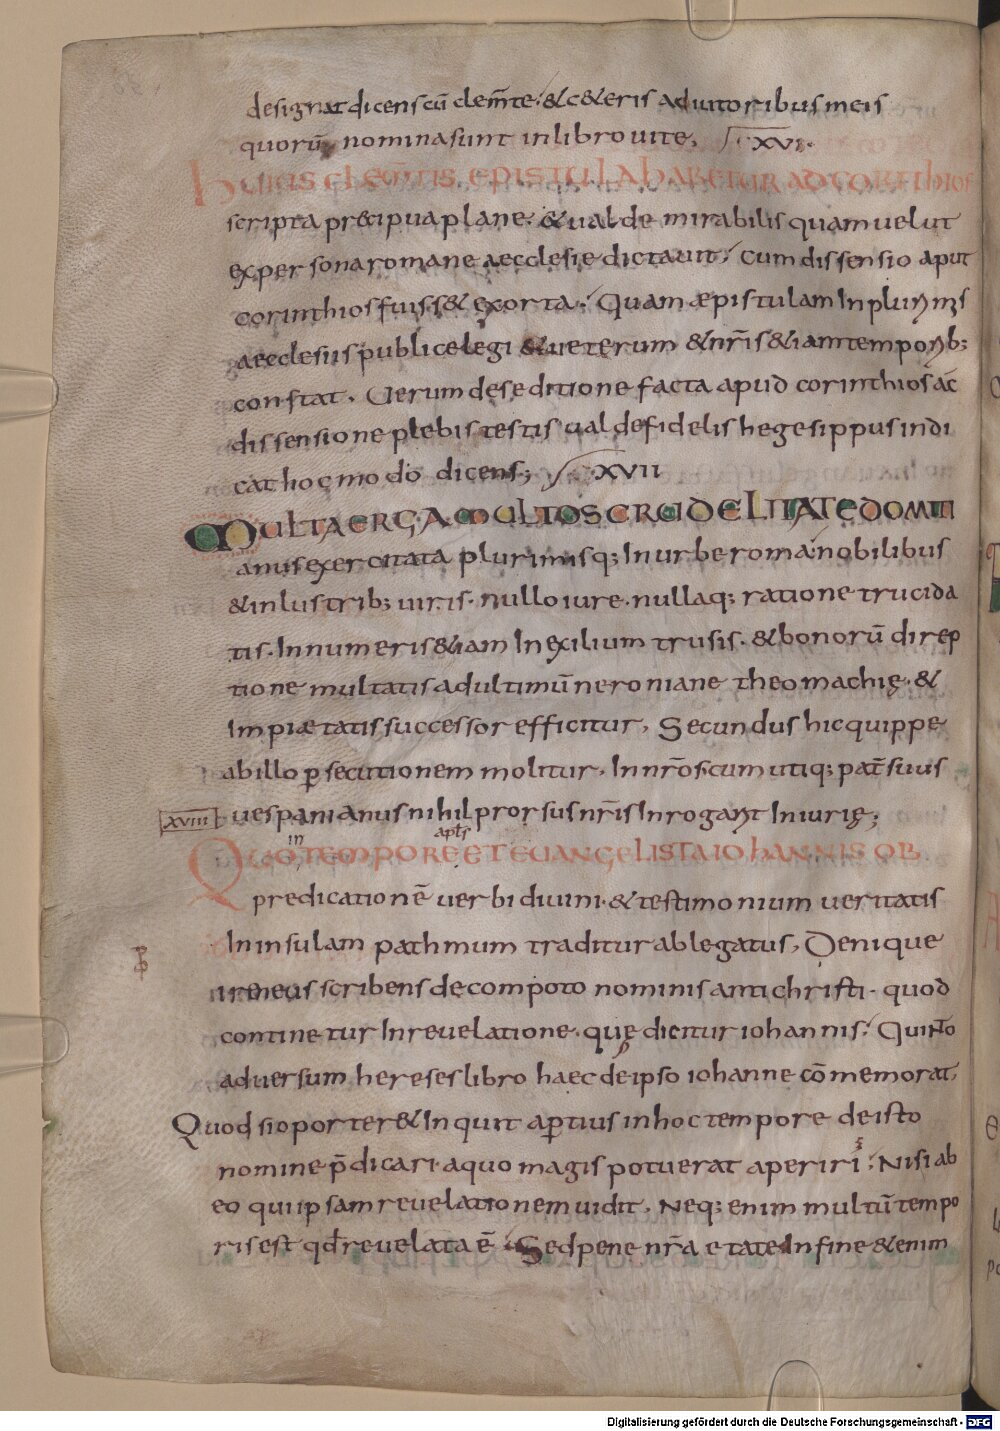 designat dicens cū clem̄te & c&eris adiutoribus meis
quorū nomina sunt in libro uite. XVI.
Huius clem̄tis epistula habetur ad corinthios
scripta precipua plane. & ualde mirabilis quam uelut
ex persona romane aecclesie dictauit. Cum dissensio aput
corinthios fuiss& exorta. Quam æpistulam In plurimis
aecclesiis publice legi & ueterum & nr̄is &iam temporib;
constat. Uerum de seditione facta apud corinthios ac
dissensione plebis testis ualde fidelis hegesippus indi
cat hoc modo dicens; XVII
MULTA ERGA MULTOS CRUDELITATE DOMITI
anus exercitata plurimisq; In urbe roma nobilibus
& inlustrib; uiris. nullo iure. nullaq; ratione trucida
tis. Innumeris &iam In exilium trusis. & bonorū direp
tione multatis ad ultimū neroniane theomachię. &
Impiætatis successor efficitur. Secundus hic quippe
ab illo ꝑsecutionem molitur. In nr̄os. cum utiq; pat̄ suus
XVIII uespanianus nihil prorsus nr̄is Inrogarit Iniurię;
in apls
Quo tempore et euangelista iohannis ob
predicationē uerbi diuini. & testimonium ueritatis
In insulam pathmum traditur ablegatus. Denique
ireneus scribens de compoto nominis antichristi. quod
continetur In reuelatione. quę dicitur iohannis. Quinto
aduersum hereses libro haec de ipso iohanne cōmemorat.
Quod si oporter& Inquit aꝑtius in hoc tempore de isto
nomine p̄dicari. a quo magis potuerat aperiri; Nisi ab
eo qui ipsam reuelationem uidit. Neq; enim multū tempo
ris est qd̄ reuelata ē. Sed pene nr̄a etate In fine &enim
Digitalisierung gefördert durch die Deutsche Forschungsgemeinschaft - DFG